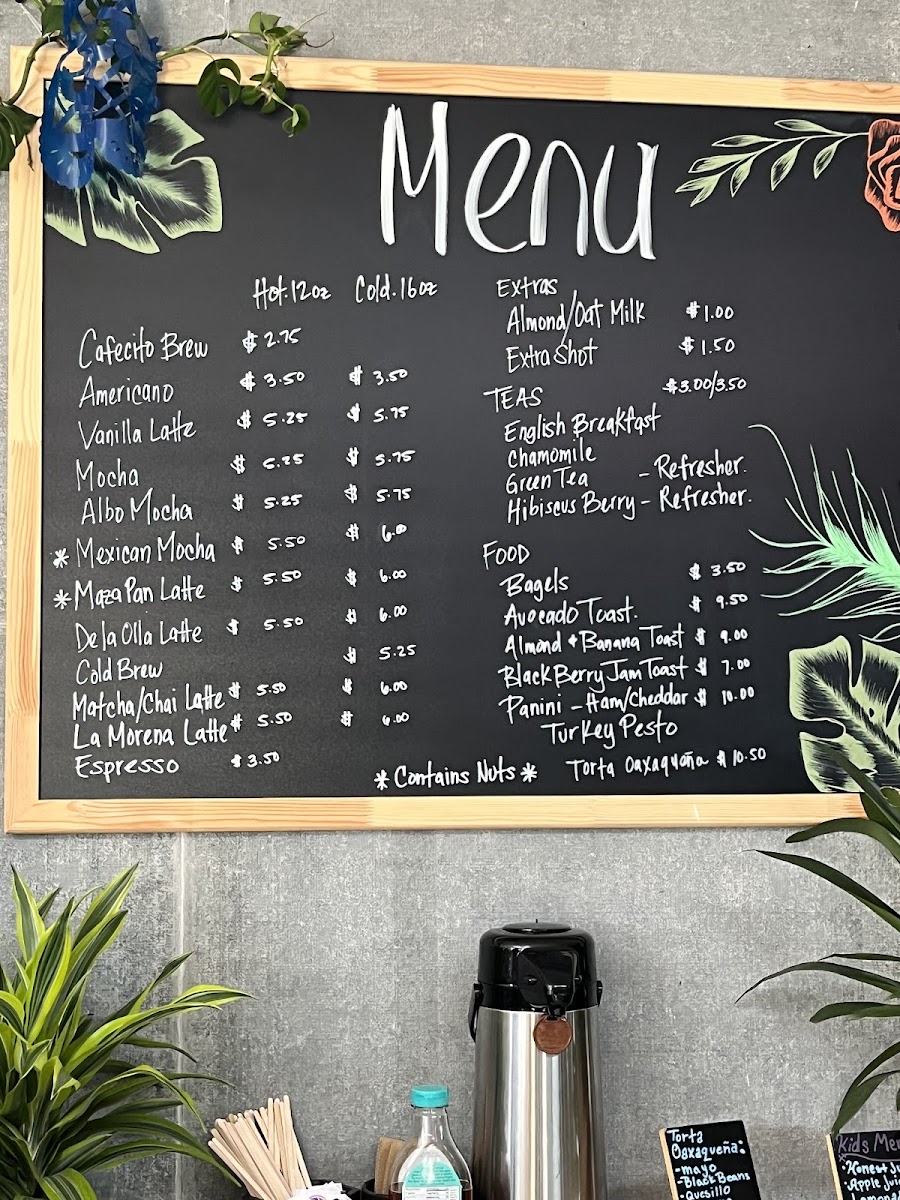 Menu
Hot.12oz Cold.16oz
Cafecito Brew $ 2.75
Americano $ 3.50 $ 3.50
Vanilla Latte $ 5.25 $ 5.75
Mocha $ 5.25 $ 5.75
Albo Mocha $ 5.25 $ 5.75
* Mexican Mocha $ 5.50 $ 6.00
* Maza Pan Latte $ 5.50 $ 6.00
De la Olla Latte $ 5.50 $ 6.00
Cold Brew $ 5.25
Matcha/Chai Latte $ 5.50 $ 6.00
La Morena Latte $ 5.50 $ 6.00
Espresso $ 3.50
* Contains Nuts *
Extras
Almond/Oat Milk $1.00
Extra Shot $1.50
TEAS $3.00/3.50
English Breakfast
Chamomile
Green Tea - Refresher.
Hibiscus Berry - Refresher.
FOOD
Bagels $ 3.50
Avocado Toast. $ 9.50
Almond + Banana Toast $ 9.00
BlackBerry Jam Toast $ 7.00
Panini - Ham/Cheddar $ 10.00
Turkey Pesto
Torta Oaxaqueña $ 10.50
Torta
Oaxaqueña:
- mayo
- Black Beans
- Quesillo
Kids Me
*Honest Ju
*Apple Jui